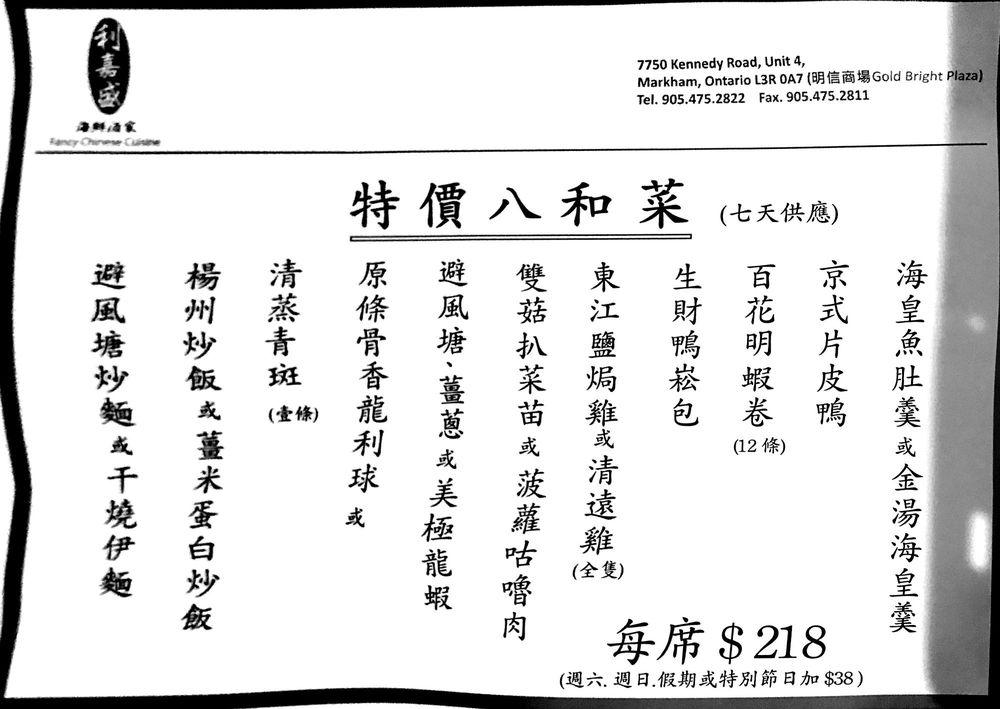 利嘉盛
海鮮酒家
Fancy Chinese Cuisine
7750 Kennedy Road, Unit 4,
Markham, Ontario L3R 0A7 (明信商場Gold Bright Plaza)
Tel. 905.475.2822 Fax. 905.475.2811
特價八和菜 (七天供應)
海皇魚肚羹或金湯海皇羹
京式片皮鴨
百花明蝦卷(12條)
生財鴨崧包
東江鹽焗雞或清遠雞(全隻)
雙菇扒菜苗或菠蘿咕嚕肉
避風塘、薑蔥或美極龍蝦
原條骨香龍利球或
清蒸青斑(壹條)
楊州炒飯或薑米蛋白炒飯
避風塘炒麵或干燒伊麵
每席$218
(週六.週日.假期或特別節日加$38)